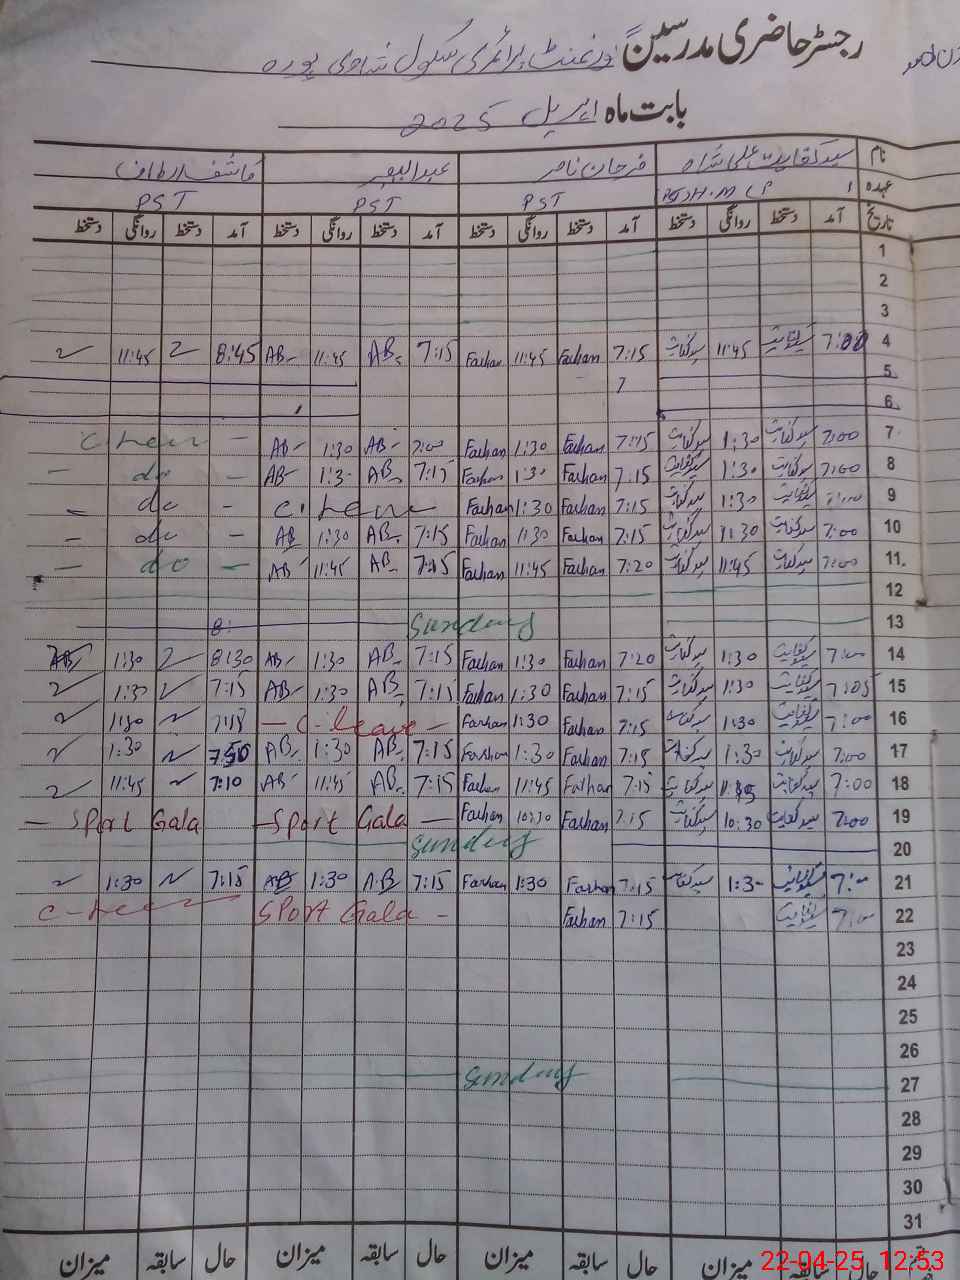 رجسٹر حاضری مدرسین گورنمنٹ پرائمری سکول شادی پورہ
بابت ماہ اپریل 2025
نام سید کفایت علی شاہ فرحان ناصر عبدالبصیر
عہدہ PST PST PST
تاریخ آمد دستخط روانگی دستخط آمد دستخط روانگی دستخط آمد دستخط روانگی دستخط آمد دستخط روانگی دستخط
1
2
3
4 7:00 سید کفایت 11:45 سید کفایت 7:15 Farhan 11:45 Farhan 7:15 AB 11:45 AB 8:45 11:45
5
6
7 7:00 سید کفایت 1:30 سید کفایت 7:15 Farhan 1:30 Farhan 7:00 AB 1:30 AB
8 7:00 سید کفایت 1:30 سید کفایت 7:15 Farhan 1:30 Farhan 7:15 AB 1:30 AB - do -
9 7:00 سید کفایت 1:30 سید کفایت 7:15 Farhan 1:30 Farhan - do -
10 7:00 سید کفایت 1:30 سید کفایت 7:15 Farhan 1:30 Farhan 7:15 AB 1:30 AB - do -
11 7:00 سید کفایت 11:45 سید کفایت 7:20 Farhan 11:45 Farhan 7:15 AB 11:45 AB - do -
12
13 Sunday 8:
14 7:00 سید کفایت 1:30 سید کفایت 7:20 Farhan 1:30 Farhan 7:15 AB 1:30 AB 8:30 1:30
15 7:05 سید کفایت 1:30 سید کفایت 7:15 Farhan 1:30 Farhan 7:15 AB 1:30 AB 7:15 1:30
16 7:00 سید کفایت 1:30 سید کفایت 7:15 Farhan 1:30 Farhan - C-leave - 1:30
17 7:00 سید کفایت 1:30 سید کفایت 7:15 Farhan 1:30 Farhan 7:15 AB 1:30 AB 1:30
18 7:00 سید کفایت 11:45 سید کفایت 7:15 Farhan 11:45 Farhan 7:15 AB 11:45 AB 7:10 11:45
19 7:00 سید کفایت 10:30 سید کفایت 7:15 Farhan 10:30 Farhan - Sport Gala - - Sport Gala
20 Sunday
21 7:00 سید کفایت 1:30 سید کفایت 7:15 Farhan 1:30 Farhan 7:15 AB 1:30 AB 7:15 1:30
22 7:00 سید کفایت 7:15 Farhan Sport Gala -
23
24
25
26
27 Sunday
28
29
30
31
حال میزان سابقہ حال میزان سابقہ حال میزان سابقہ حال میزان
22-04-25 12:53